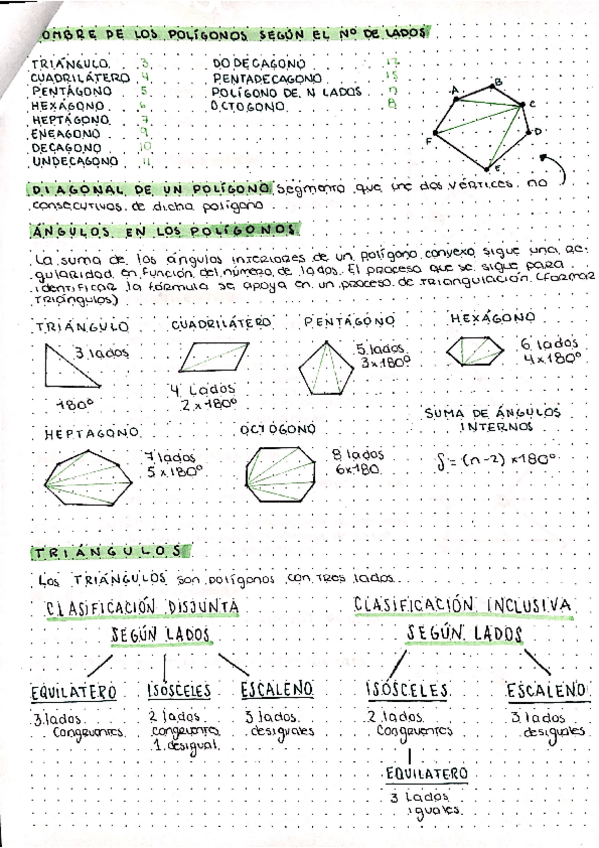 OMBRE DE LOS POLÍGONOS SEGÚN EL Nº DE LADOS
TRIÁNGULO 3
CUADRILÁTERO 4
PENTÁGONO 5
HEXÁGONO 6
HEPTÁGONO 7
ENEAGONO 9
DECAGONO 10
UNDECAGONO 11
DODECAGONO 12
PENTADECAGONO 15
POLÍGONO DE N LADOS n
OCTOGONO 8
A
B
C
D
E
F
DIAGONAL DE UN POLÍGONO segmento que une dos vértices no
consecutivos de dicho polígono
ÁNGULOS EN LOS POLÍGONOS
La suma de los ángulos interiores de un polígono convexo sigue una re-
gularidad en función del número de lados. El proceso que se sigue para
identificar la fórmula se apoya en un proceso de triangulación (formar
triángulos)
TRIÁNGULO
3 lados
180º
CUADRILÁTERO
4 lados
2 x 180º
PENTÁGONO
5 lados
3x180º
HEXÁGONO
6 lados
4x180º
HEPTAGONO
7 lados
5 x 180º
OCTÓGONO
8 lados
6x180
SUMA DE ÁNGULOS
INTERNOS
S = (n-2) x 180º
TRIÁNGULOS
Los TRIÁNGULOS son polígonos con tres lados
CLASIFICACIÓN DISJUNTA
SEGÚN LADOS
EQUILATERO
3 lados
congruentes
ISÓSCELES
2 lados
congruentes
1 desigual
ESCALENO
3 lados
desiguales
CLASIFICACIÓN INCLUSIVA
SEGÚN LADOS
ISÓSCELES
2 lados
congruentes
EQUILATERO
3 lados
iguales
ESCALENO
3 lados
desiguales